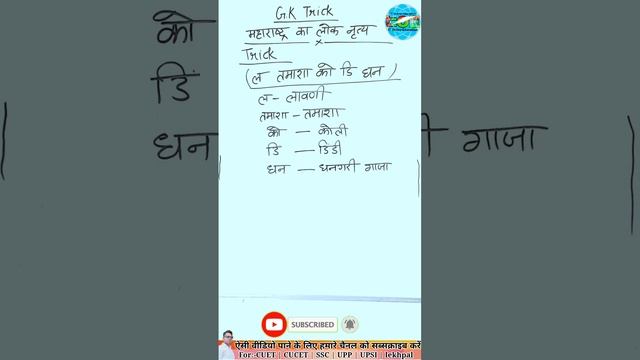 GK Trick
महाराष्ट्र का लोक नृत्य
Trick
(ल तमाशा को डि धन)
ल - लावणी
तमाशा - तमाशा
को - कोली
डि - डिंडी
धन - धनगरी गाजा
को
डिं
धन
ी गाजा
SUBSCRIBED
ऐसी वीडियो पाने के लिए हमारे चैनल को सब्सक्राइब करें
For:-CUET | CUCET | SSC | UPP | UPSI | lekhpal